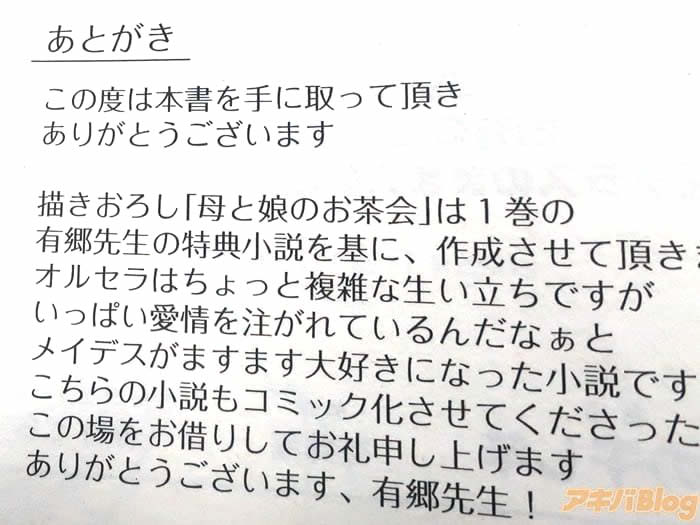 あとがき
この度は本書を手に取って頂き
ありがとうございます
描きおろし「母と娘のお茶会」は１巻の
有郷先生の特典小説を基に、作成させて頂き
オルセラはちょっと複雑な生い立ちですが
いっぱい愛情を注がれているんだなぁと
メイデスがますます大好きになった小説です
こちらの小説もコミック化させてくださった
この場をお借りしてお礼申し上げます
ありがとうございます、有郷先生！
アキバBlog